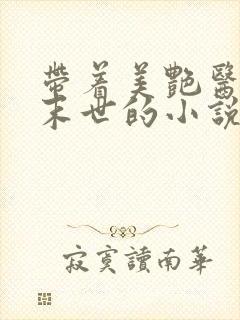 帶着美艷醫
末世的小說
寂寞讀南華